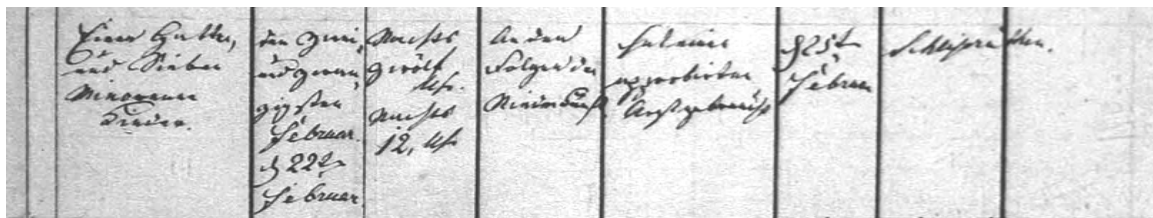 Einen Gatten,
und Sieben
Minorenne
Kinder.
den zwei
und zwan
zigsten
Februar.
d 22te
Februar.
Nachts
zwölf
Uhr.
Nachts
12, Uhr
An den
Folgen der
Niederkunft
hat einen
approbirten
Arzt gebraucht
d 25te
Februar